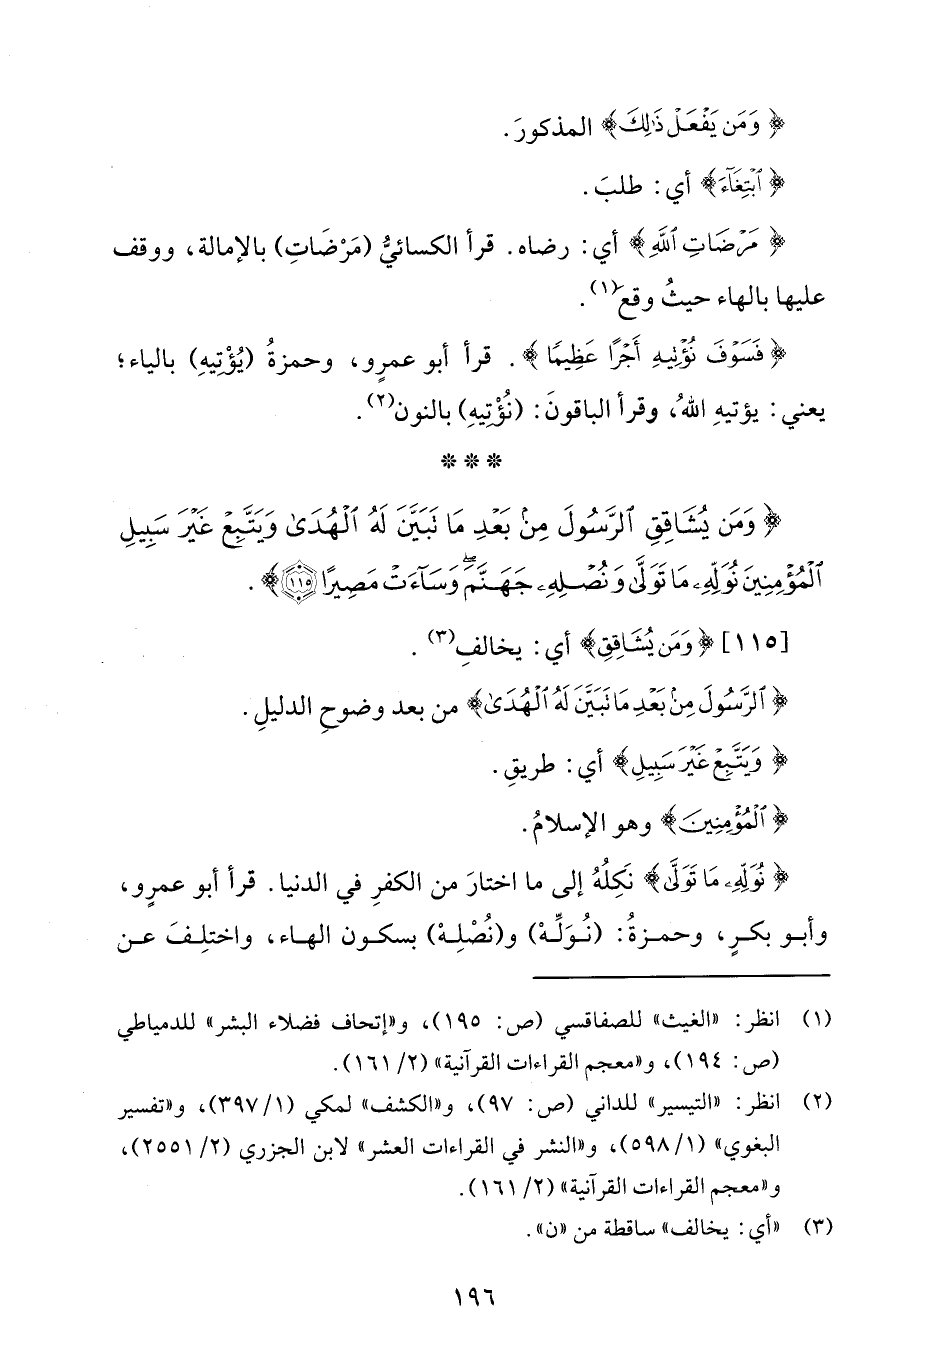 ﴿وَمَن يَفْعَلْ ذَٰلِكَ﴾ المذكورَ.
﴿ٱبْتِغَآءَ﴾ أي: طلبَ.
﴿مَرْضَاتِ ٱللَّهِ﴾ أي: رضاه. قرأ الكسائيُّ (مَرْضَاتِ) بالإمالة، ووقف
عليها بالهاء حيثُ وقعَ(١).
﴿فَسَوْفَ نُؤْتِيهِ أَجْرًا عَظِيمًا﴾. قرأ أبو عمرٍو، وحمزةُ (يُؤْتِيهِ) بالياء؛
يعني: يؤتيهِ اللهُ، وقرأ الباقونَ: (نُؤْتِيهِ) بالنون(٢).
* * *
﴿وَمَن يُشَاقِقِ ٱلرَّسُولَ مِنۢ بَعْدِ مَا تَبَيَّنَ لَهُ ٱلْهُدَىٰ وَيَتَّبِعْ غَيْرَ سَبِيلِ
ٱلْمُؤْمِنِينَ نُوَلِّهِۦ مَا تَوَلَّىٰ وَنُصْلِهِۦ جَهَنَّمَۖ وَسَآءَتْ مَصِيرًا ١١٥﴾.
[١١٥] ﴿وَمَن يُشَاقِقِ﴾ أي: يخالفِ(٣).
﴿ٱلرَّسُولَ مِنۢ بَعْدِ مَا تَبَيَّنَ لَهُ ٱلْهُدَىٰ﴾ من بعد وضوحِ الدليلِ.
﴿وَيَتَّبِعْ غَيْرَ سَبِيلِ﴾ أي: طريقِ.
﴿ٱلْمُؤْمِنِينَ﴾ وهو الإسلامُ.
﴿نُوَلِّهِۦ مَا تَوَلَّىٰ﴾ نَكِلُهُ إلى ما اختارَ من الكفرِ في الدنيا. قرأ أبو عمرٍو،
وأبو بكرٍ، وحمزةُ: (نُوَلِّهْ) و(نُصْلِهْ) بسكون الهاء، واختلِفَ عن
(١) انظر: «الغيث» للصفاقسي (ص: ١٩٥)، و«إتحاف فضلاء البشر» للدمياطي
(ص: ١٩٤)، و«معجم القراءات القرآنية» (٢/ ١٦١).
(٢) انظر: «التيسير» للداني (ص: ٩٧)، و«الكشف» لمكي (١/ ٣٩٧)، و«تفسير
البغوي» (١/ ٥٩٨)، و«النشر في القراءات العشر» لابن الجزري (٢/ ٢٥٥١)،
و«معجم القراءات القرآنية» (٢/ ١٦١).
(٣) «أي: يخالف» ساقطة من «ن».
١٩٦